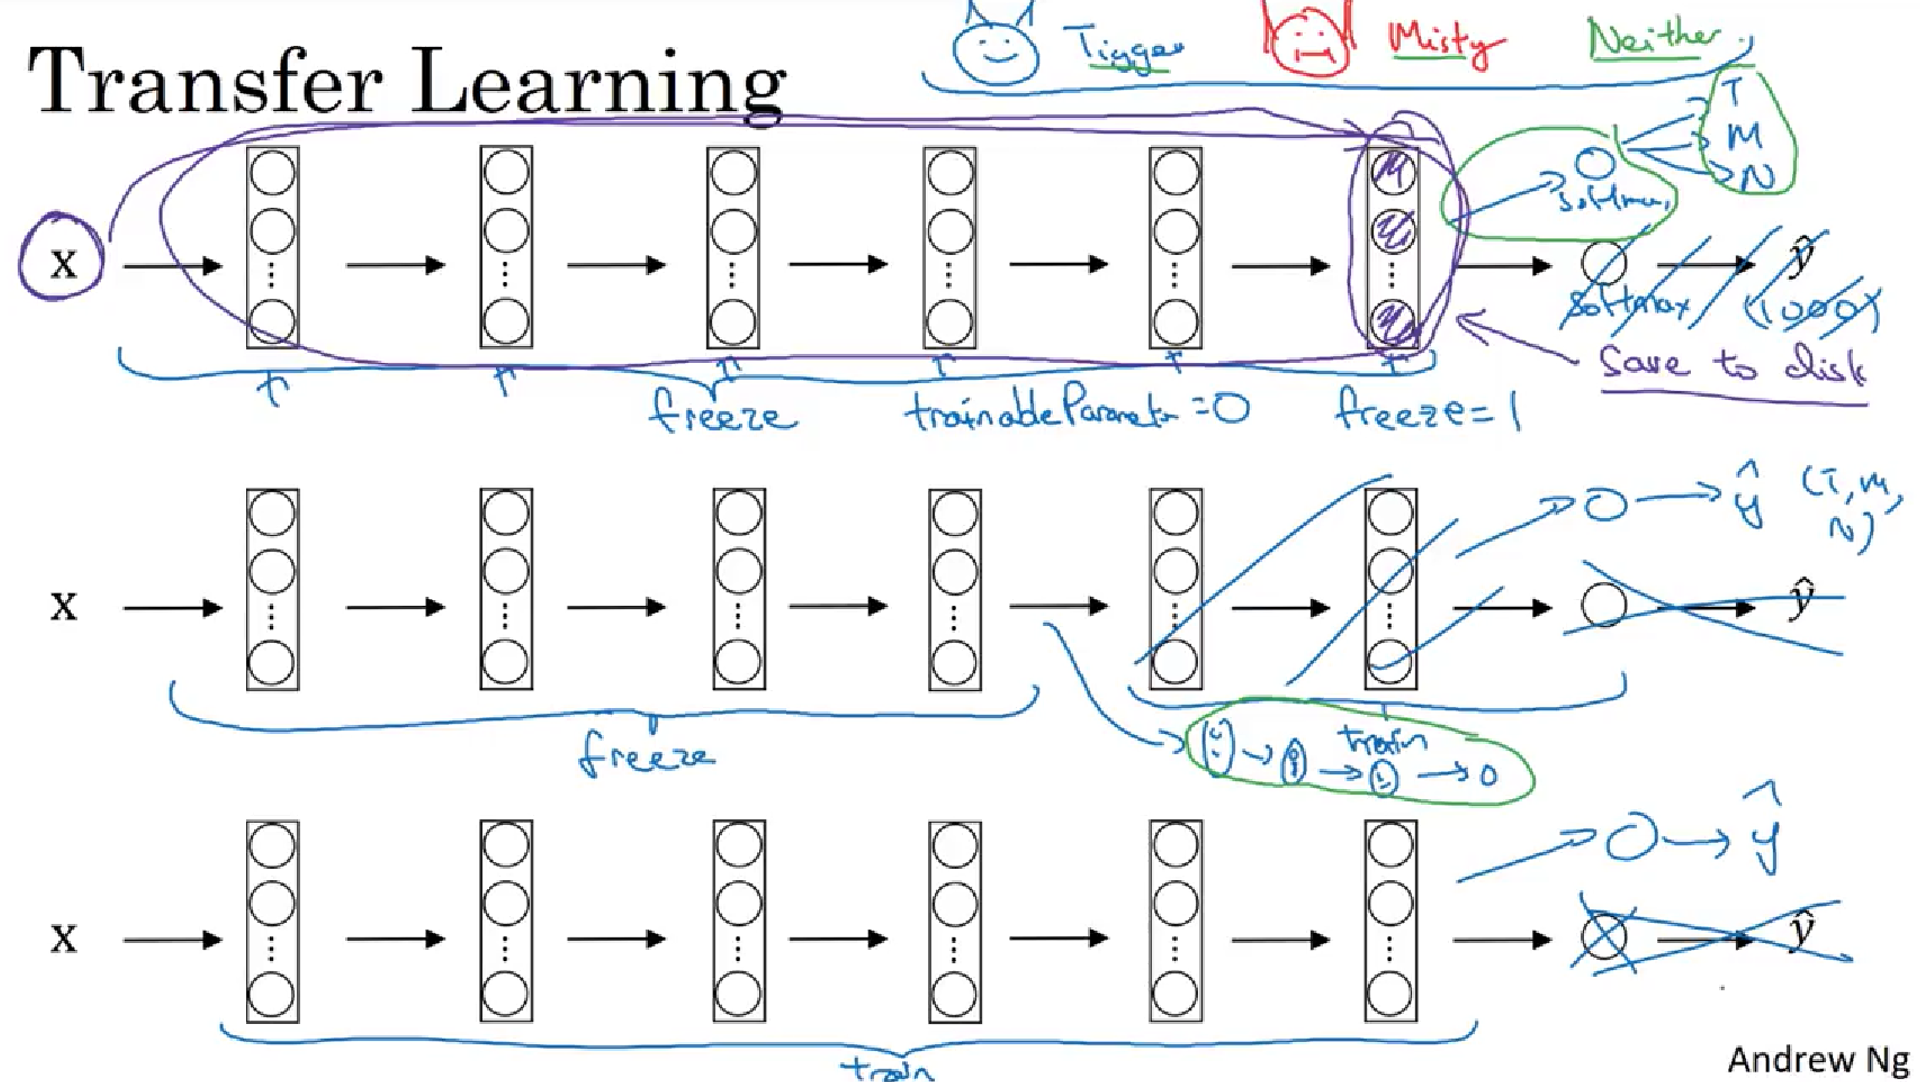 Transfer Learning
Tigger Misty Neither
T
M
N
softmax
x ŷ
softmax (1000)
save to disk
freeze trainableParameter = 0 freeze = 1
ŷ (T, M,
N)
x ŷ
freeze
train
ŷ
x ŷ
train
Andrew Ng